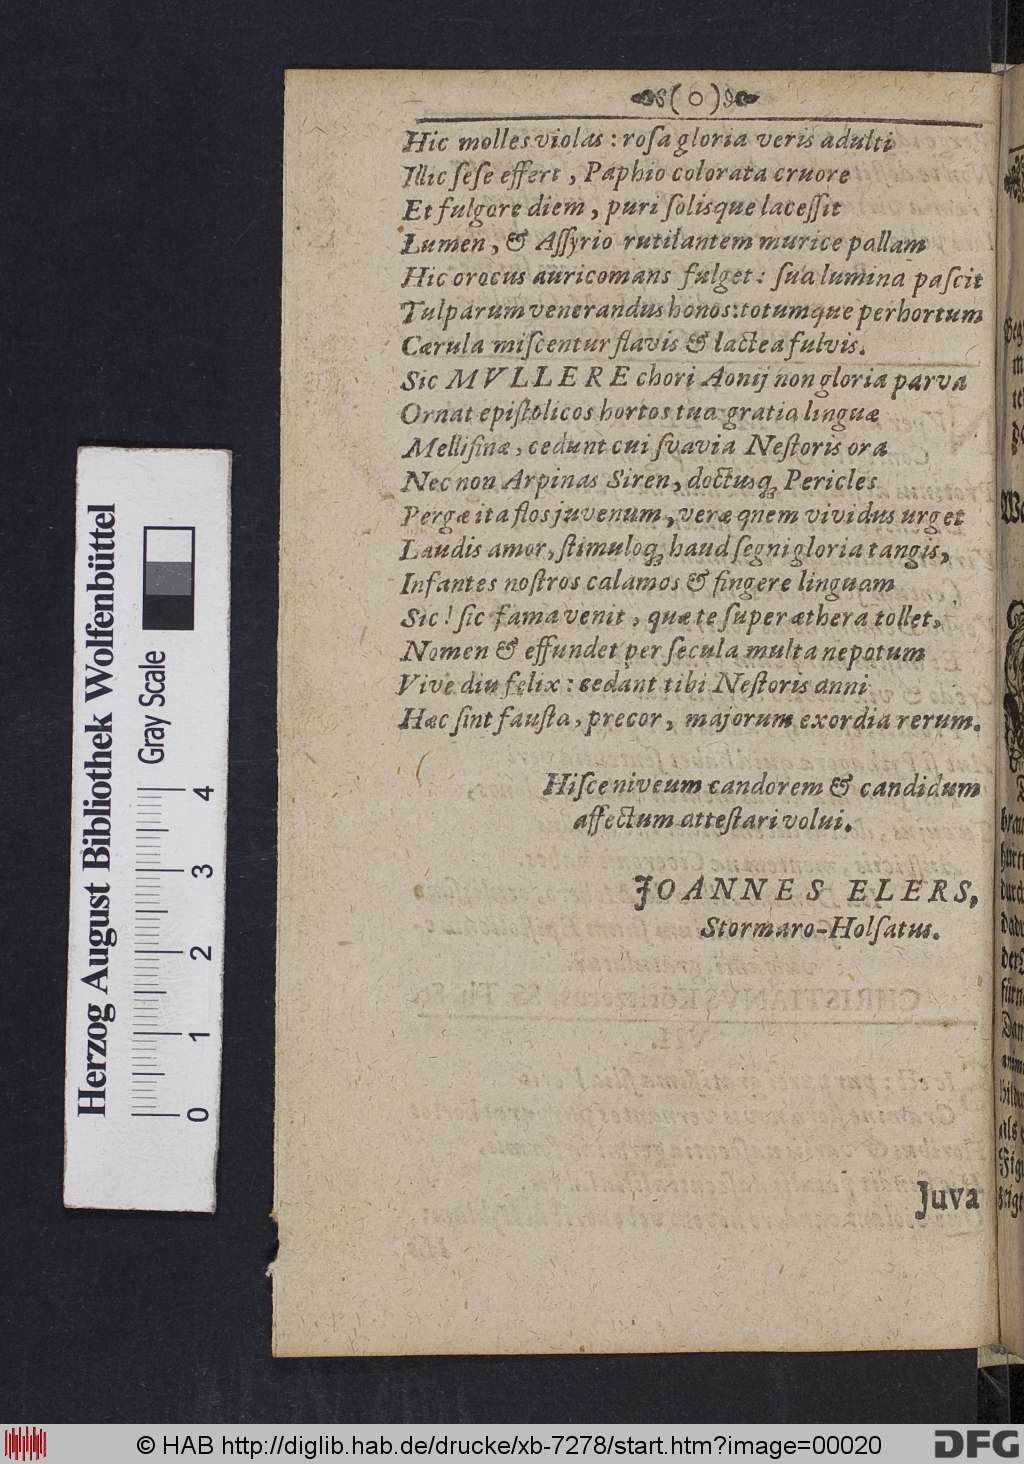 (o)
Hic molles violas : roſa gloria veris adulti
Illic ſeſe effert , Paphio colorata cruore
Et fulgore diem , puri ſolisque laceſſit
Lumen , & Aſſyrio rutilantem murice pallam
Hic crocus auricomans fulget : ſua lumina paſcit
Tulparum venerandus honos: totumque per hortum
Cærula miſcentur flavis & lactea fulvis.
Sic MVLLERE chori Aonij non gloria parva
Ornat epiſtolicos hortos tua gratia linguæ
Mellifinæ, cedunt cui ſvavia Neſtoris ora
Nec non Arpinas Siren, doctusq; Pericles
Pergæ ita flos juvenum, veræ qnem vividus urget
Laudis amor, ſtimuloq; haud ſegni gloria tangis,
Infantes noſtros calamos & fingere linguam
Sic! ſic fama venit , quæ te ſuper æthera tollet,
Nomen & effundet per ſecula multa nepotum
Vive diu felix : cedant tibi Neſtoris anni
Hæc ſint fauſta, precor, majorum exordia rerum.
Hiſce niveum candorem & candidum
affectum atteſtari volui.
JOANNES ELERS,
Stormaro-Holſatus.
Juva
Herzog August Bibliothek Wolfenbüttel
Gray Scale
0 1 2 3 4
© HAB http://diglib.hab.de/drucke/xb-7278/start.htm?image=00020
DFG